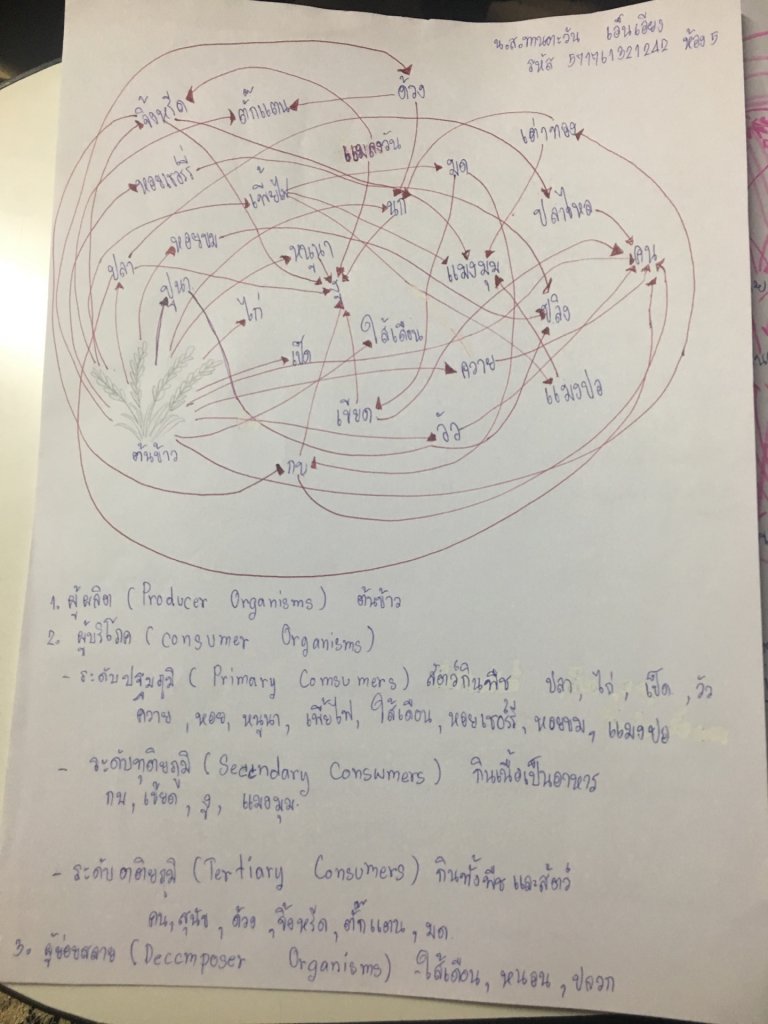 น.ส.ทานตะวัน เอ็นเอียง
รหัส 571761321242 ห้อง 5
จิ้งหรีด
ตั๊กแตน
ด้วง
เต่าทอง
แมลงวัน
มด
หอยเชอรี่
เพี้ยไฟ
นก
ปลาไหล
หอยขม
ปลา
หนูนา
แมงมุม
คน
ปูนา
งู
ไก่
ปลิง
ไส้เดือน
เป็ด
ควาย
แมงปอ
เขียด
วัว
ต้นข้าว
กบ
1. ผู้ผลิต (Producer Organisms) ต้นข้าว
2. ผู้บริโภค (Consumer Organisms)
- ระดับปฐมภูมิ (Primary Comsumers) สัตว์กินพืช ปลา, ไก่, เป็ด, วัว
ควาย, หอย, หนูนา, เพี้ยไฟ, ไส้เดือน, หอยเชอร์รี่, หอยขม, แมงปอ
- ระดับทุติยภูมิ (Secendary Consumers) กินเนื้อเป็นอาหาร
กบ, เขียด, งู, แมงมุม.
- ระดับตติยภูมิ (Tertiary Consumers) กินทั้งพืชและสัตว์
คน, สุนัข, ด้วง, จิ้งหรีด, ตั๊กแตน, มด.
3. ผู้ย่อยสลาย (Deccmposer Organisms) -ไส้เดือน, หนอน, ปลวก